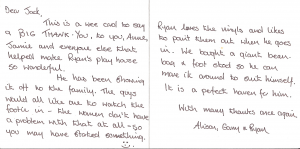 Dear Jack,
This is a wee card to say
a BIG THANK-YOU, to you, Anne,
Jamie and everyone else that
helped make Ryan's play house
so wonderful.
He has been showing
it off to the family. The guys
would all like one to watch the
footie in - the women don't have
a problem with that at all - so
you may have started something.
Ryan loves the vinyls and likes
to point them out when he goes
in. We bought a giant bean-
bag & foot stool so he can
move it around to suit himself.
It is a perfect haven for him.
With many thanks once again,
Alison, Gary & Ryan